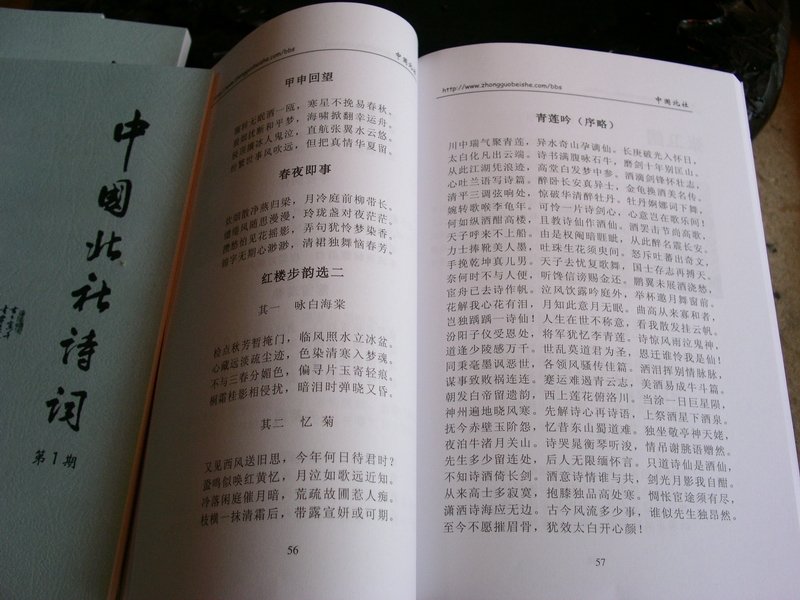 中国北社诗词
第1期
http://www.zhongguobeishe.com/bbs
中国北社
甲申回望
无眠酒一瓯，寒星不挽易春秋。
犹断和平梦，海啸掀翻幸运舟。
冰人鬼泣，直航张翼水云悠。
世事风吹远，但把真情华夏留。
春夜即事
饮烟散净燕归梁，月冷庭前柳带长。
随思漫漫，玲珑盏对夜茫茫。
怕见花摇影，弄句犹怜梦染香。
字无期心渺渺，清裙独舞恼春芳。
红楼步韵选二
其一 咏白海棠
检点秋芳暂掩门，临风照水立冰盆。
心藏远淡疏尘迹，色染清寒入梦魂。
不与三春分媚色，偏寻片玉寄轻痕。
桐霜桂影相侵扰，暗泪时弹晓又昏。
其二 忆菊
又见西风送旧思，今年何日待君时？
蛩鸣似唤红黄忆，月泣如歌远近知。
冷落闲庭催月暗，荒疏故圃惹人痴。
枝横一抹清霜后，带露宣妍或可期。
56
http://www.zhongguobeishe.com/bbs
中国北社
青莲吟（序略）
川中瑞气聚青莲，异水奇山孕谪仙。长庚破光入怀日，
太白化凡出云端。诗书满腹咏石牛，磨剑十年别匡山。
从此江湖凭浪迹，高堂白发梦中参。酒滴剑锋怀壮志，
心吐兰语写诗篇。醉卧长安真异士，金龟换酒美名传。
清平三调弦响处，惊破华清醉牡丹。牡丹婀娜词下舞，
婉转歌喉李龟年。可怜一片诗剑心，心意岂在歌乐间！
何如纵酒酣高楼，且教诗仙作酒仙。酒罢击节尚高歌，
天子呼来不上船。由是权阉暗睚眦，从此醉名震长安。
力士捧靴美人墨，吐珠生花须臾间。怒斥吐蕃出奇文，
手挽乾坤真儿男。天子去忧复歌舞，国士存志再搏天。
奈何时不与人便，听馋信谤赐金还。鹏翼未展酒浇愁，
宦舟已去诗作帆。泣风饮露吟窗外，举杯邀月舞窗前。
花解我心花有泪，月知此意月无眠。曲高从来寡和者，
岂独踽踽一诗仙！人生在世不称意，看我散发挂云帆。
汾阳子仪受恩处，将军犹忆李青莲。诗惊风雨泣鬼神，
道逢少陵感万千。世乱莫道君为圣，恩迁谁怜我是仙！
同秉毫墨讽恶世，各领风骚传佳篇。酒泪挥别情脉脉，
谋事致败祸连连。蹇运难遇青云志，美酒易成牛斗篇。
朝发白帝留遗韵，西上莲花俯洛川。当涂一日巨星陨，
神州遍地晓风寒。先解诗心再诗语，上祭酒星下酒泉。
抚今赤壁玉阶怨，忆昔东山蜀道难。独坐敬亭神天姥，
夜泊牛渚月关山。诗哭晁衡琴听浚，情吊谢朓语赠然。
先生多少留连处，后人无限缅怀言。只道诗仙是酒仙，
不知诗酒倚长剑。酒意诗情谁与共，剑光月影我自酣。
从来高士多寂寞，抱膝独品高处寒。惆怅宦途须有尽，
潇洒诗海应无边。古今风流多少事，谁似先生独昂然。
至今不愿摧眉骨，犹效太白开心颜！
57